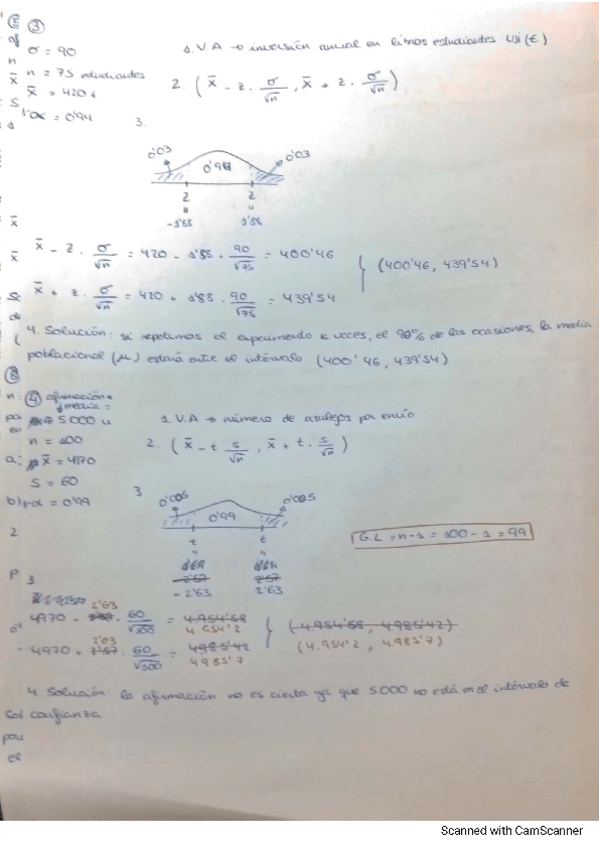 ③
σ = 90
n = 75 estudiantes
x̄ = 420 €
1-α = 0'94
1. V.A → inversión anual en libros estudiantes uji (€)
2. (x̄ - z · σ/√n, x̄ + z · σ/√n)
3.
0'03 0'94 0'03
z z
-1'88 1'88
x̄ - z · σ/√n = 420 - 1'88 · 90/√75 = 400'46
x̄ + z · σ/√n = 420 + 1'88 · 90/√75 = 439'54
(400'46, 439'54)
4. Solución: si repetimos el experimento k veces, el 94% de las ocasiones, la media
poblacional (μ) estará entre el intervalo (400'46, 439'54)
④ afirmación
media =
5.000 u
n = 100
x̄ = 4970
s = 60
1-α = 0'99
1. V.A → número de azulejos por envío
2. (x̄ - t · s/√n, x̄ + t · s/√n)
3
0'005 0'99 0'005
t t
-2'63 2'63
G.L = n-1 = 100 - 1 = 99
3.
4970 - 2'63 · 60/√100 = 4.954'2
4970 + 2'63 · 60/√100 = 4985'7
(4.954'58, 4985'42)
(4.954'2, 4.985'7)
4. Solución: la afirmación no es cierta ya que 5.000 no está en el intérvalo de
confianza
Scanned with CamScanner